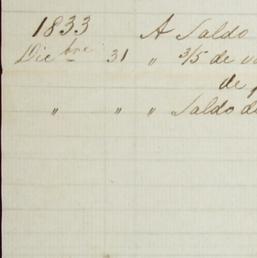 1833 A Saldo
Dic bre 31 " 3/5 de
de
" " " Saldo de